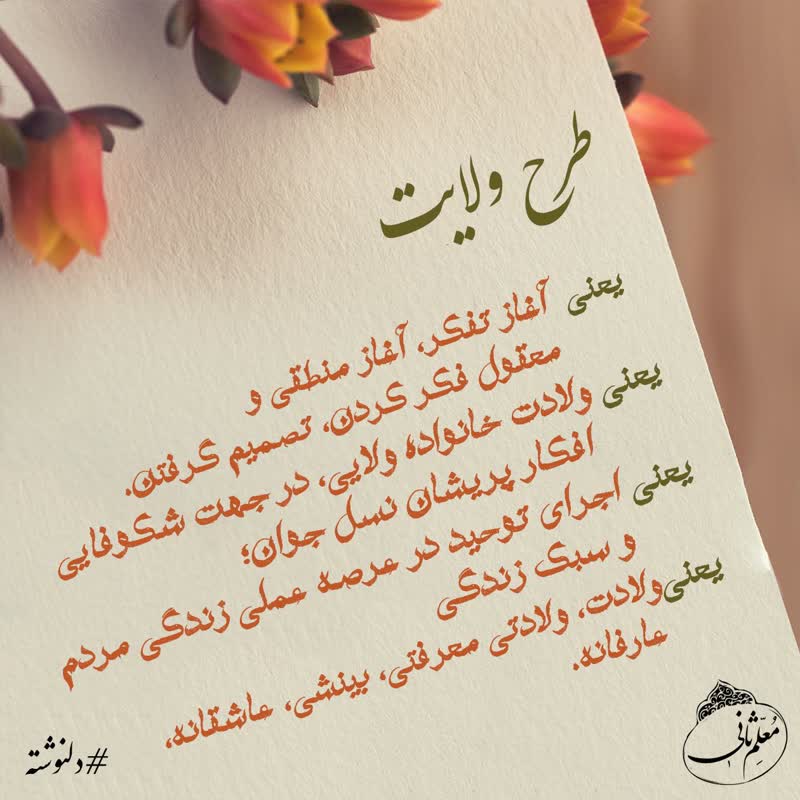 طرح ولایت
یعنی آغاز تفکر، آغاز منطقی و
معقول فکر کردن، تصمیم گرفتن.
یعنی ولادت خانواده ولایی، در جهت شکوفایی
افکار پریشان نسل جوان؛
یعنی اجرای توحید در عرصه عملی زندگی مردم
و سبک زندگی
یعنی ولادت، ولادتی معرفتی، بینشی، عاشقانه،
عارفانه.
#دلنوشته
معلّم ثانی